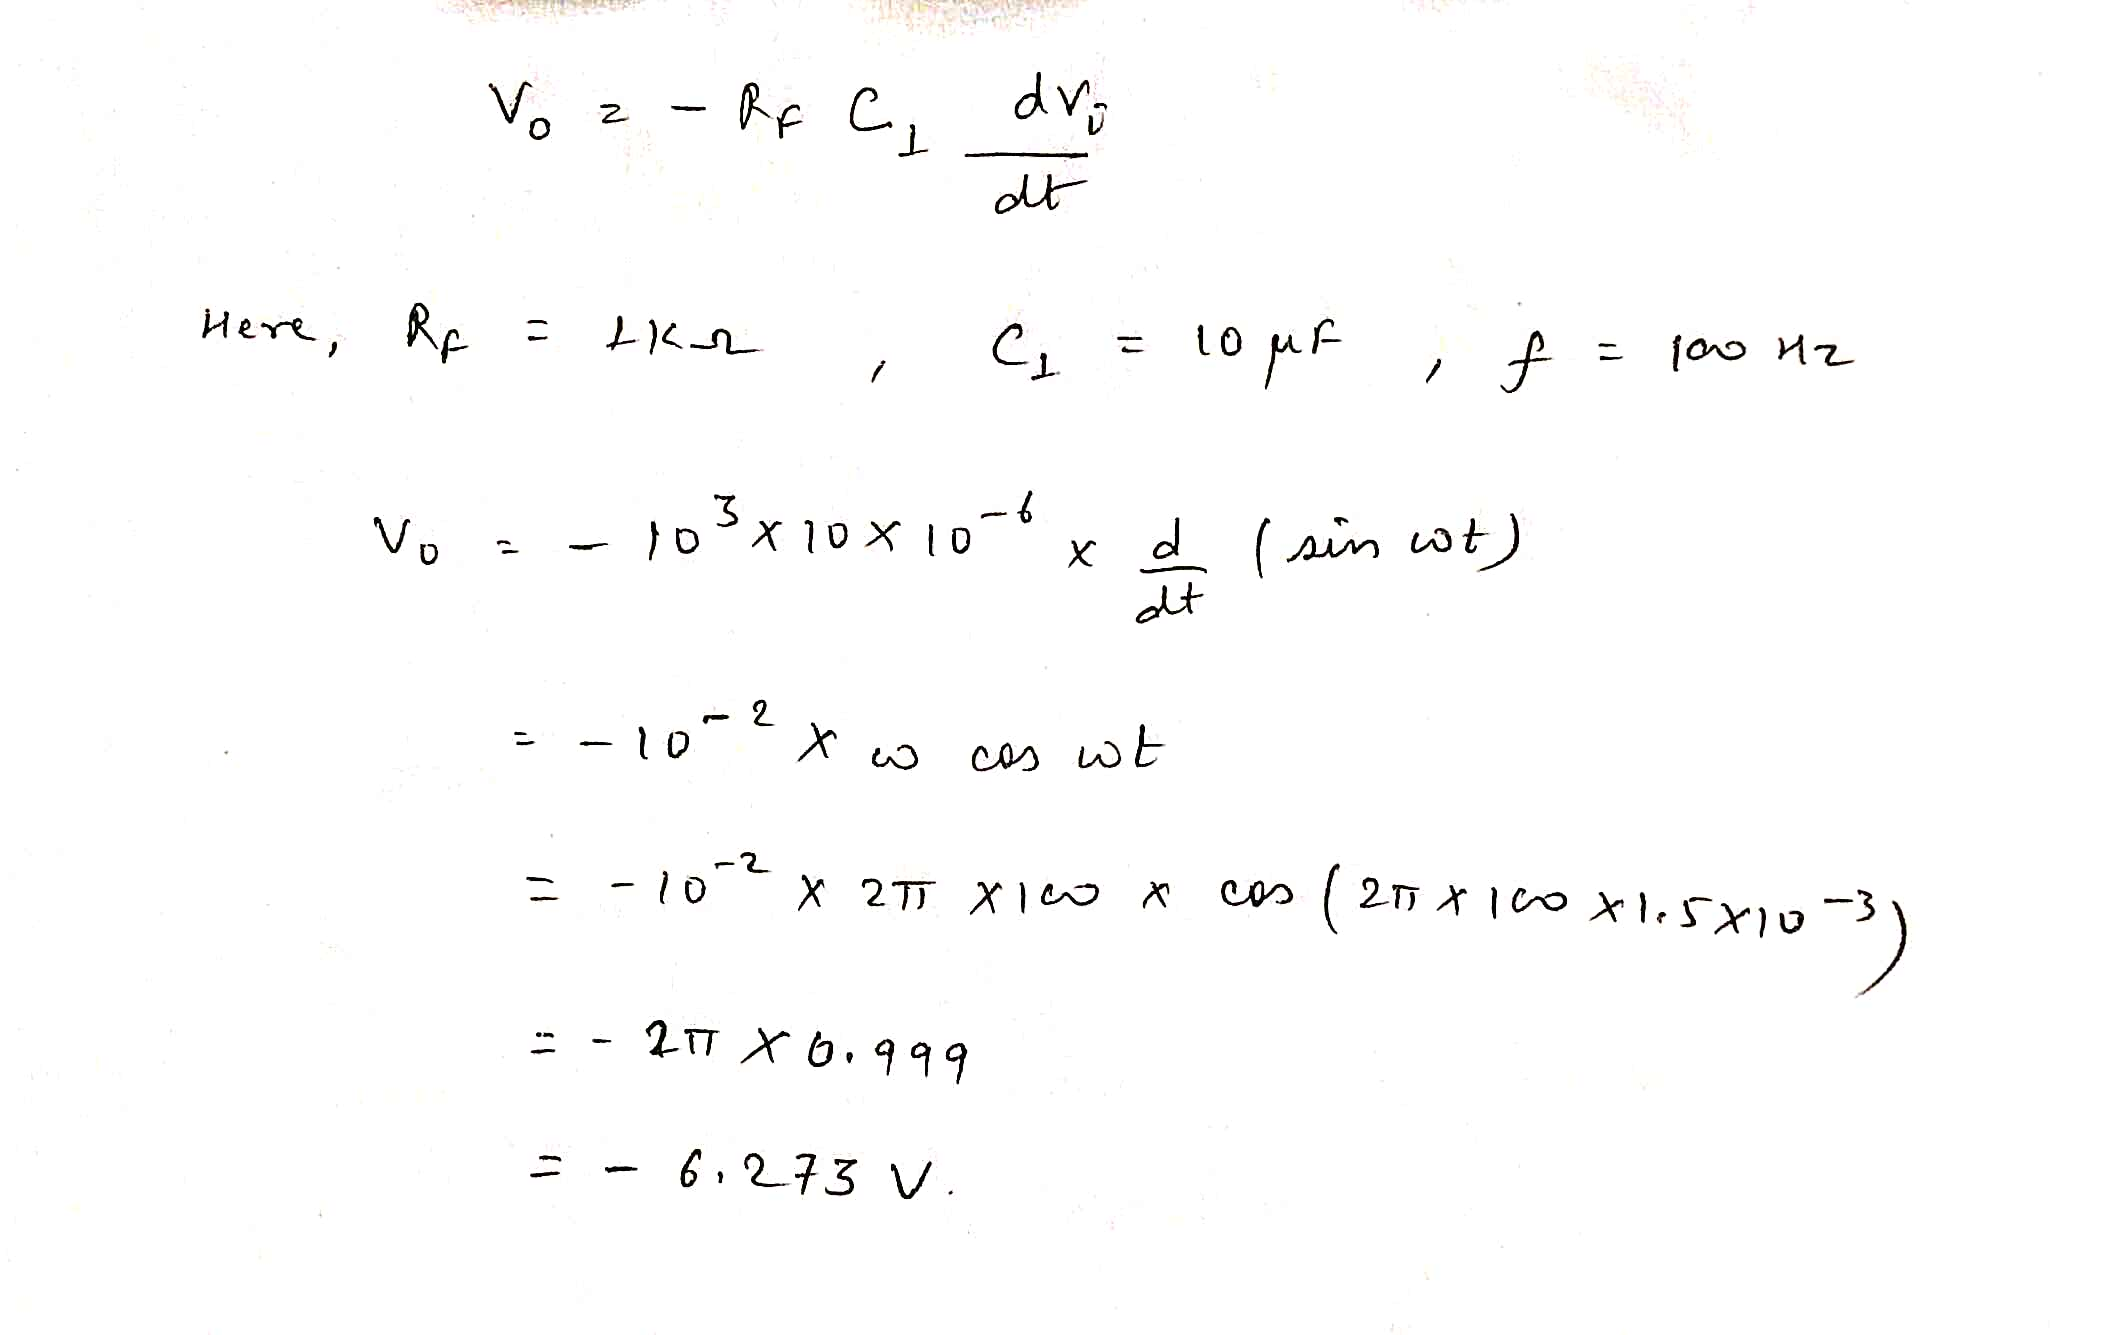 V₀ = - R_F C₁ dvᵢ/dt
Here, R_F = 1KΩ , C₁ = 10 μF , f = 100 Hz
V₀ = - 10³ × 10 × 10⁻⁶ × d/dt (sin ωt)
= - 10⁻² × ω cos ωt
= - 10⁻² × 2π × 100 × cos (2π × 100 × 1.5 × 10⁻³)
= - 2π × 0.999
= - 6.273 V.